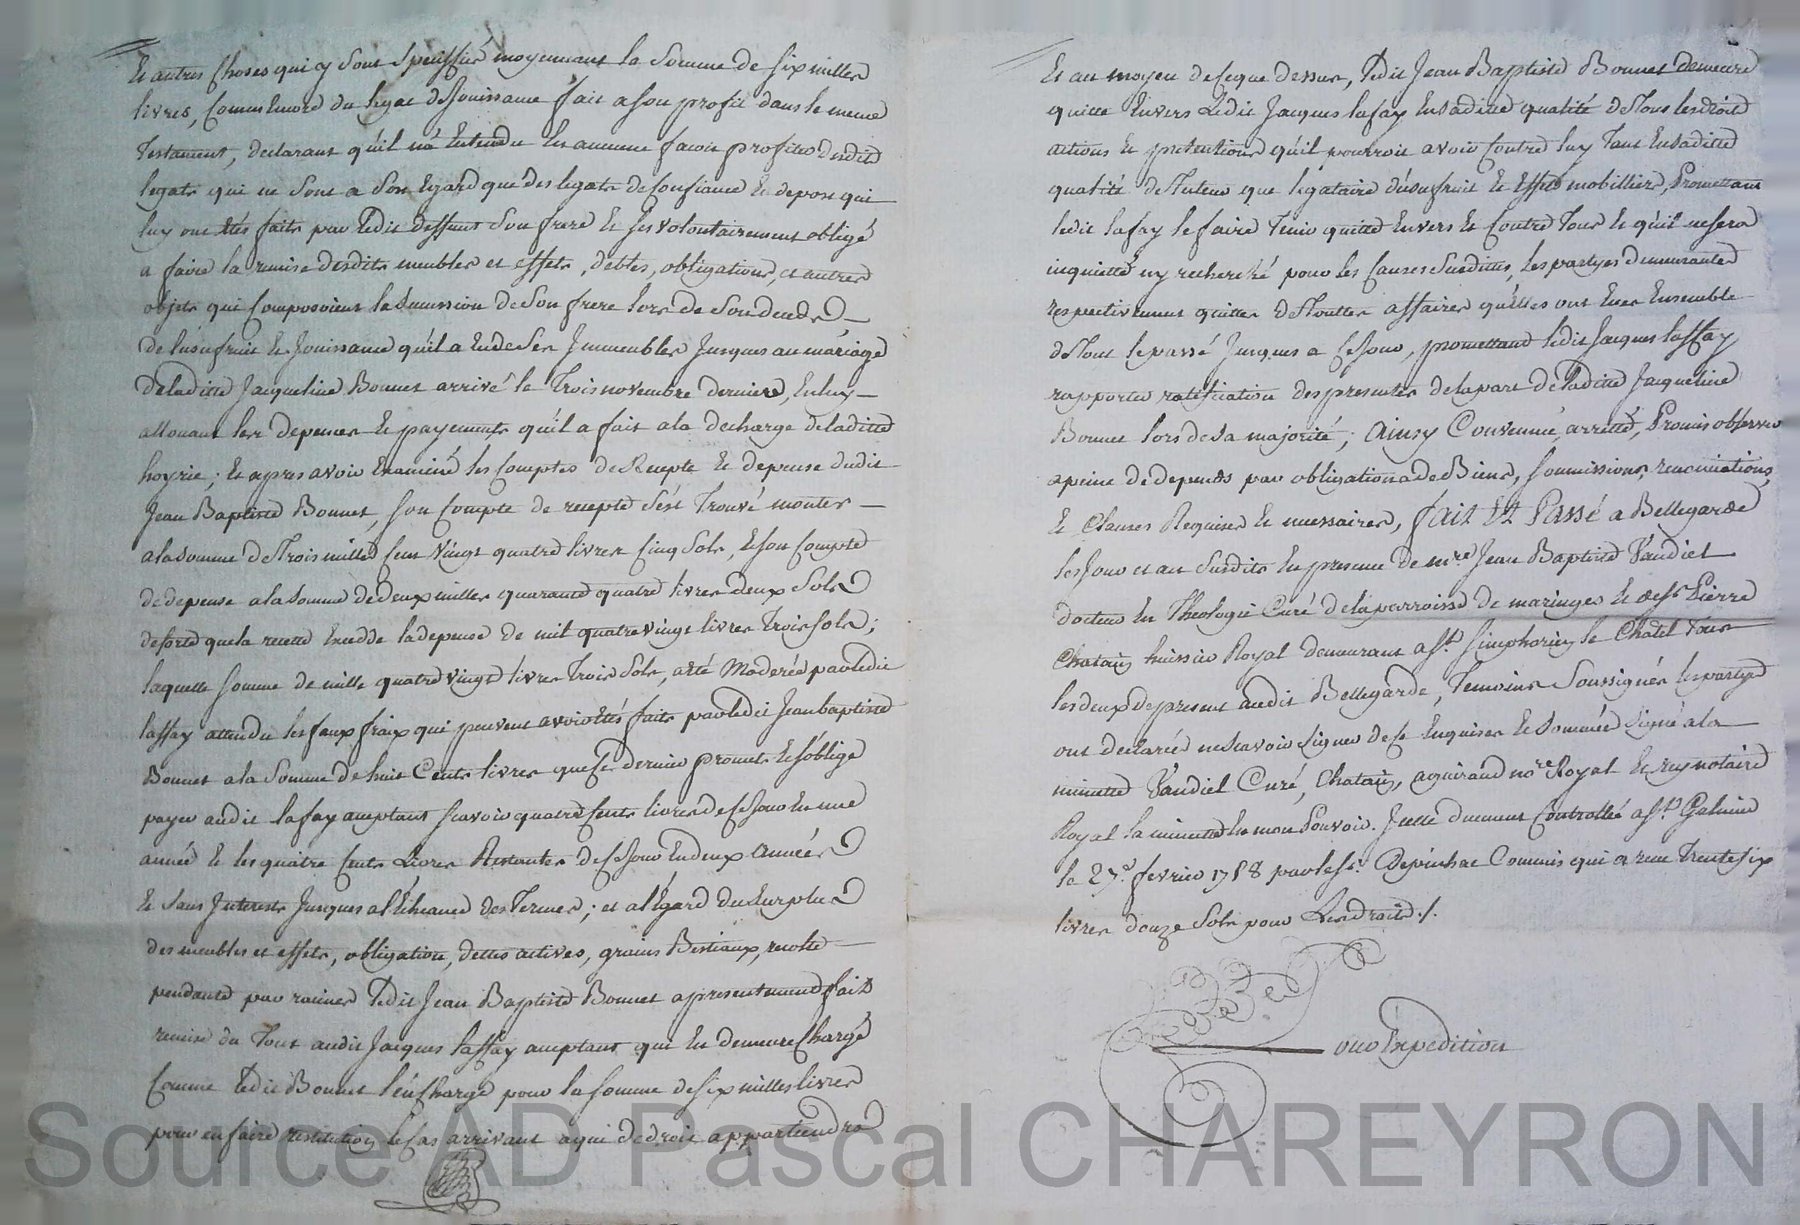 Et autres choses qui y sont speciffiés moyennant la somme de six milles
livres, comm'encore du legat de Jouissance fait a son profit dans le meme
testament, declarant qu'il n'a Entendu En aucune facon profiter desdits
legats qui ne sont a son Egard que des legats de confiance et depost qui
luy ont étés faits par ledit deffunt son frere et s'est volontairement obligé
a faire la remise desdits meubles et effets, debtes, obligations, et autres
objets qui composoient la sucession de son frere lors de son deceds
de l'usufruit et Jouissance qu'il a eu de ses Immeubles Jusques au mariage
de laditte Jacqueline Bonnet arrivé le trois novembre dernier, En luy
allouant les depenses et payements qu'il a fait a la decharge de laditte
hoyrie; Et apres avoir Examiné les comptes de Recepte et depense dudit
Jean Baptiste Bonnet, son compte de recepte s'est trouvé monter
a la somme de trois milles cent vingt quatre livres cinq sols, et son compte
de depense a la somme de deux milles quarante quatre livres deux sols
de sorte que la recette Excedde la depense de mil quatre vingt livres trois sols;
laquelle somme de mille quatre vingt livres trois sols, a été Moderée par ledit
laffay attendu les faux fraix qui peuvent avoir étés faits par ledit Jean baptiste
Bonnet a la somme de huit Cents livres que ce dernier promet et s'oblige
payer audit laffay acceptant scavoir quatre cents livres de ce jour En une
année et les quatre cents Livres Restantes de ce jour En deux années
Et sans Interests Jusques a l'Echeance des termes; et a l'égard du surplus
des meubles et effets, obligations, dettes actives, grains Bestiaux, recolte
pendante par racines ledit Jean Baptiste Bonnet a presentement fait
remise du tout audit Jacques laffay acceptant qui En demeure Chargé
Comme ledit Bonnet l'En charge pour la somme de six milles livres
pour en faire restitution le cas arrivant a qui de droit appartiendra
Et au moyen de ce que dessus, ledit Jean Baptiste Bonnet demeure
quitte Envers Ledit Jacques lafay En saditte qualité de tous les droits
actions et pretentions qu'il pourroit avoir contre luy tant En saditte
qualité de tuteur que legataire d'usufruit et Effets mobilliers, Promettant
ledit lafay le faire tenir quitte Envers et contre tous et qu'il ne sera
inquietté ny recherché pour les causes susdittes, les partyes demeurantes
respectivement quittes de touttes affaires qu'elles ont Eues Ensemble
de tout le passé Jusques a ce jour, promettant ledit Jacques laffay
rapporter ratification des presentes de la part de laditte Jacqueline
Bonnet lors de sa majorité; Ainsy Convenue, arretté, Promis observer
a peine de depends par obligation de Biens, soumissions, renonciations,
Et Clauses Requises et necessaires, fait Et Passé a Bellegarde
les jour et an susdits En presence de mre Jean Baptiste Vaudiel
docteur En Theologie Curé de la parroisse de maringes et de sr Pierre
Chatain huissier Royal demeurant a St. Simphorien le Chatel tous
les deux de present audit Bellegarde, temoins Soussignés les partyes
ont declarées ne scavoir signer de ce Enquises et sommées signé a la
minutte Vaudiel Curé, Chatain, aguiraud nore Royal et rey notaire
Royal la minutte En mon Pouvoir. Icelle duement Controllée a St. Galmier
le 27e. fevrier 1788 par le sr. Depinhac Commis qui a recu trente six
livres douze sols pour Les droits ./.
pour Expedition
Source AD Pascal CHAREYRON